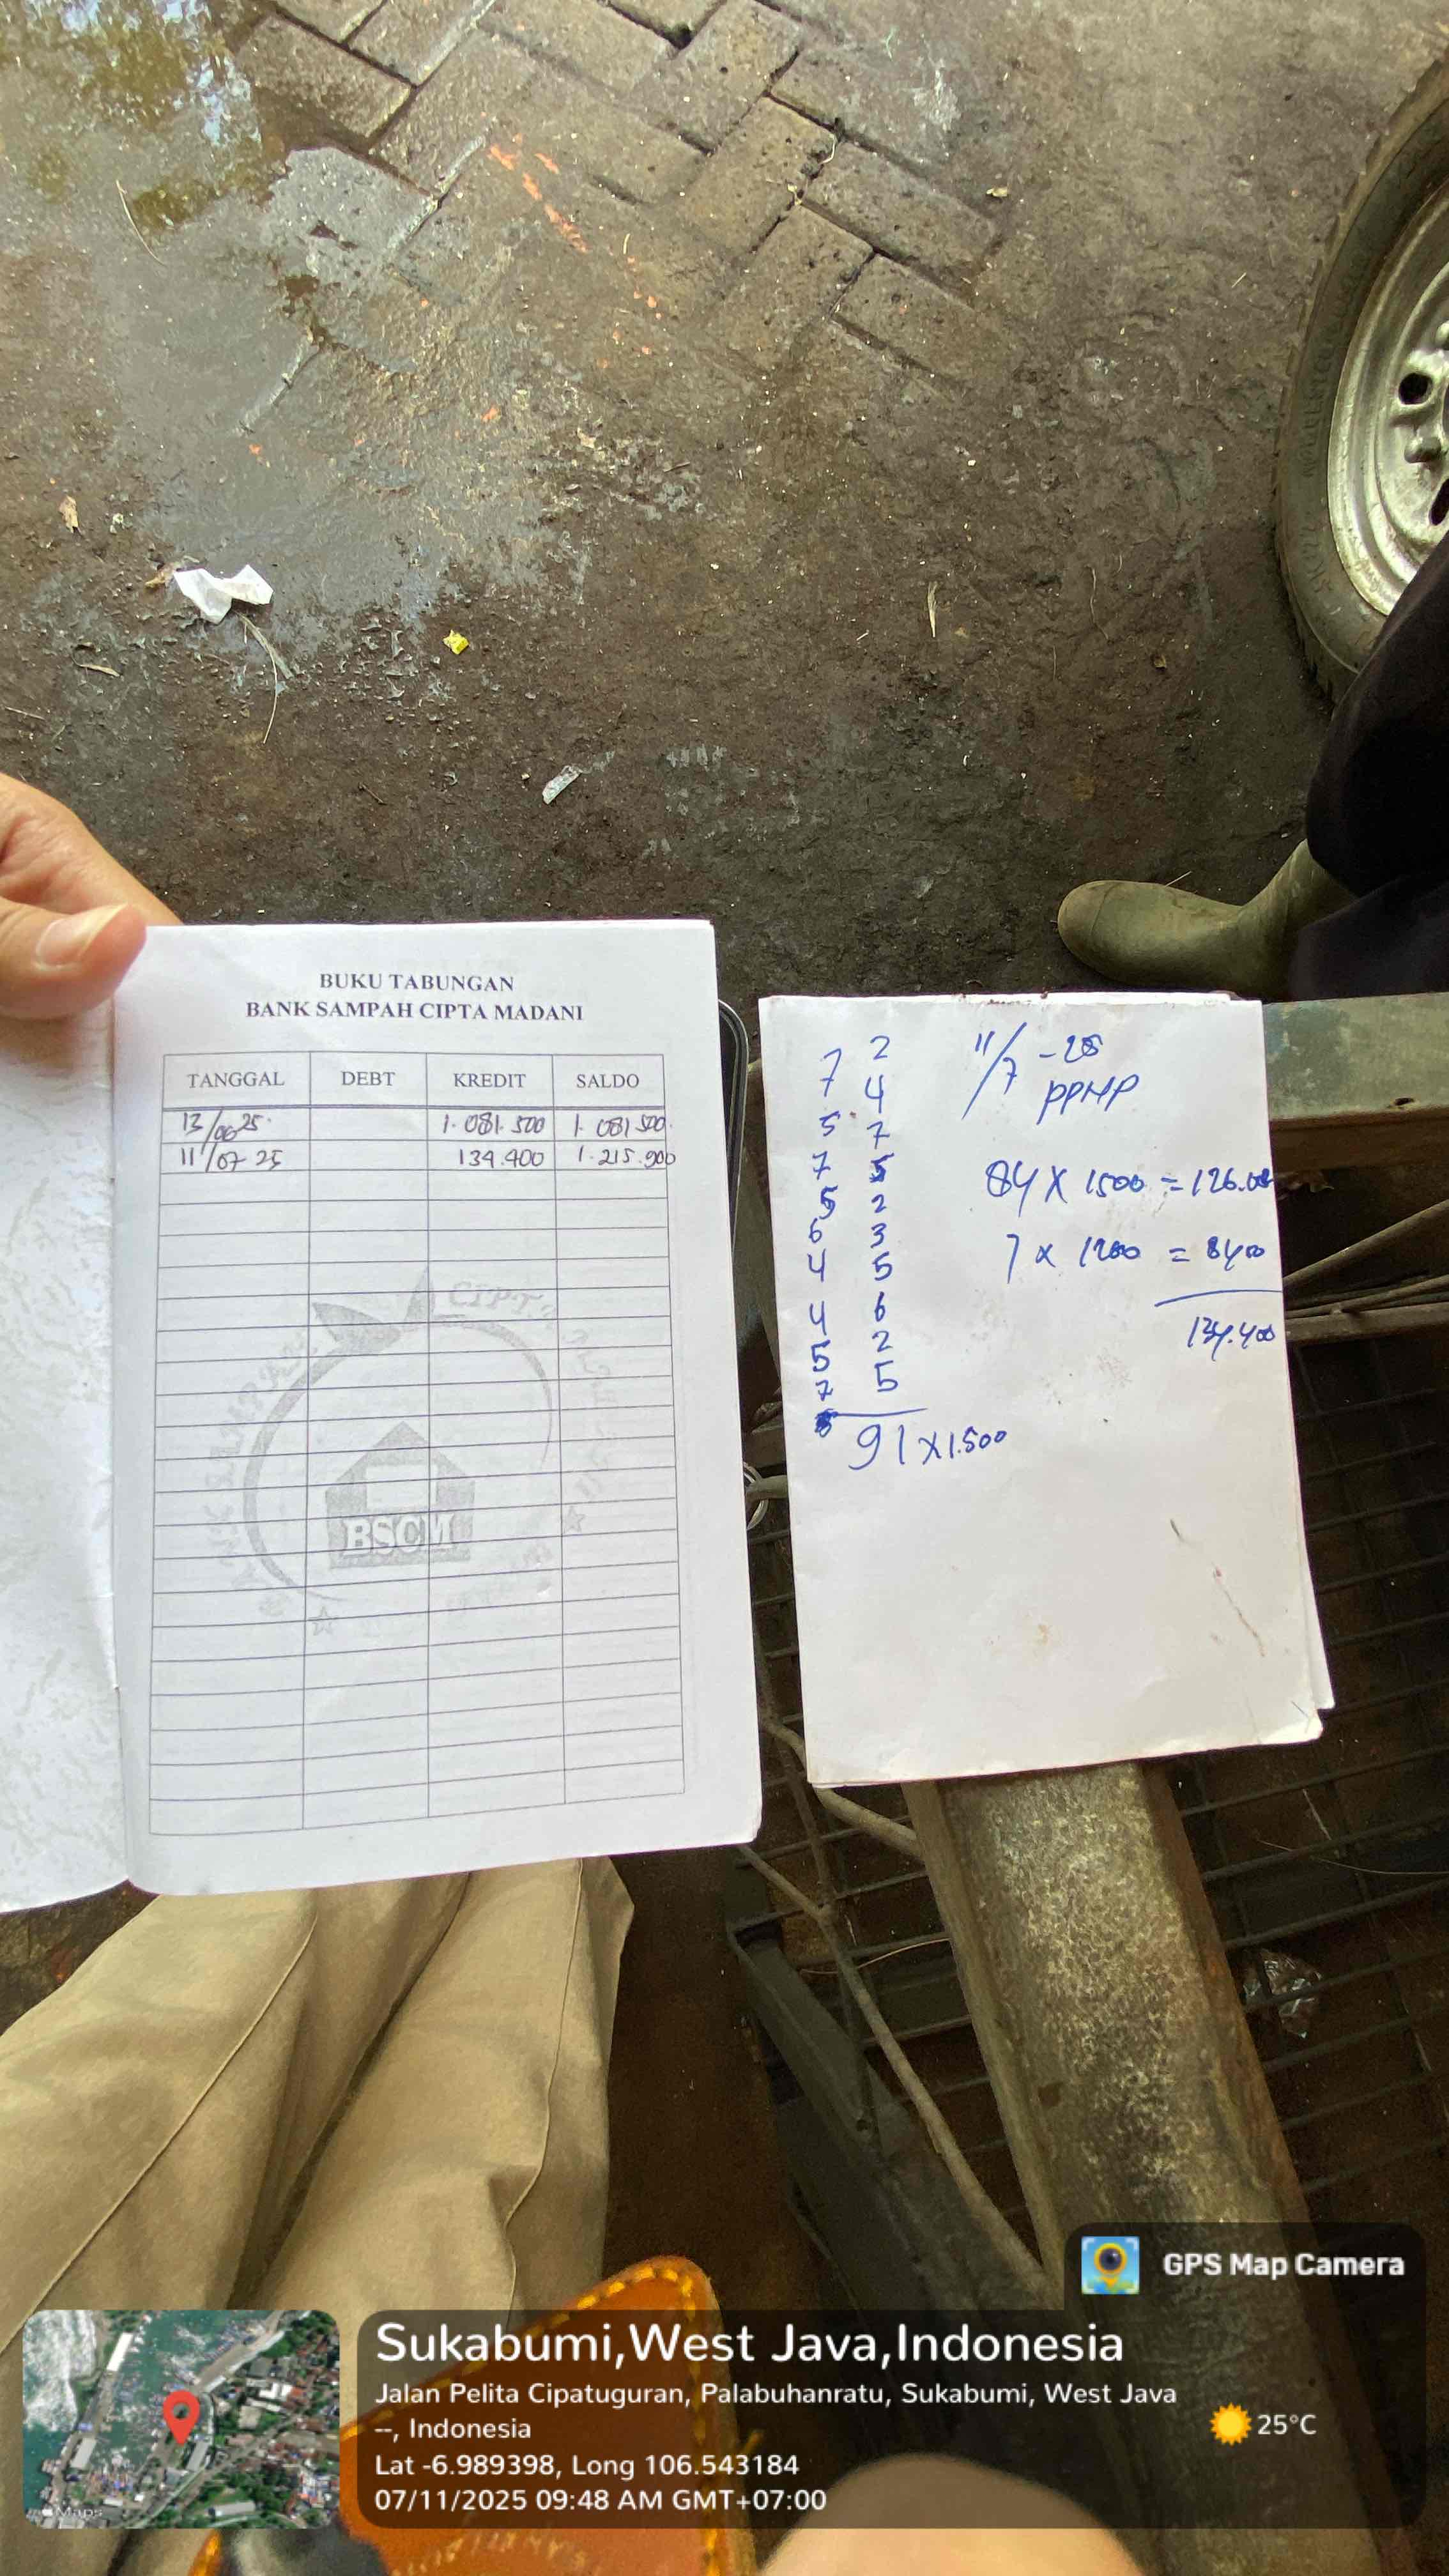 BUKU TABUNGAN
BANK SAMPAH CIPTA MADANI
TANGGAL DEBT KREDIT SALDO
13/06 25. 1.081.500 1.081.500.
11/07 25 134.400 1.215.900
CIPTA
BSCM
11/7 -25
PPNP
7 2
7 4
5 7
7 5
5 2
6 3
4 5
4 6
5 2
7 5
91 x 1.500
84 x 1500 = 126.000
7 x 1200 = 8400
134.400
GPS Map Camera
Sukabumi,West Java,Indonesia
Jalan Pelita Cipatuguran, Palabuhanratu, Sukabumi, West Java
--, Indonesia
Lat -6.989398, Long 106.543184
07/11/2025 09:48 AM GMT+07:00
25°C
Maps